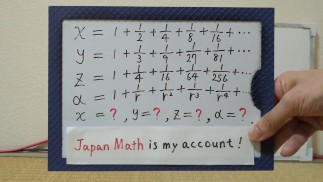 x = 1 + 1/2 + 1/4 + 1/8 + 1/16 + ⋯
y = 1 + 1/3 + 1/9 + 1/27 + 1/81 + ⋯
z = 1 + 1/4 + 1/16 + 1/64 + 1/256 + ⋯
α = 1 + 1/r + 1/r² + 1/r³ + 1/r⁴ + ⋯
x = ?, y = ?, z = ?, α = ?.
Japan Math is my account!